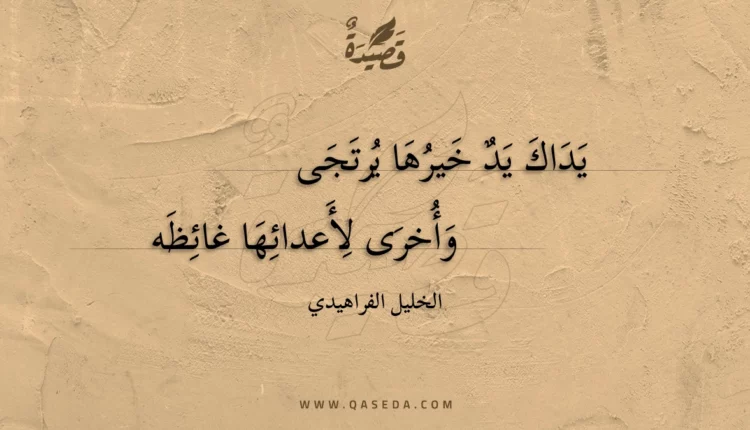 قَصِيدَةٌ
يَدَاكَ يَدٌ خَيرُهَا يُرتَجَى
وَأُخرَى لِأَعدائِهَا غائِظَه
الخليل الفراهيدي
WWW.QASEDA.COM